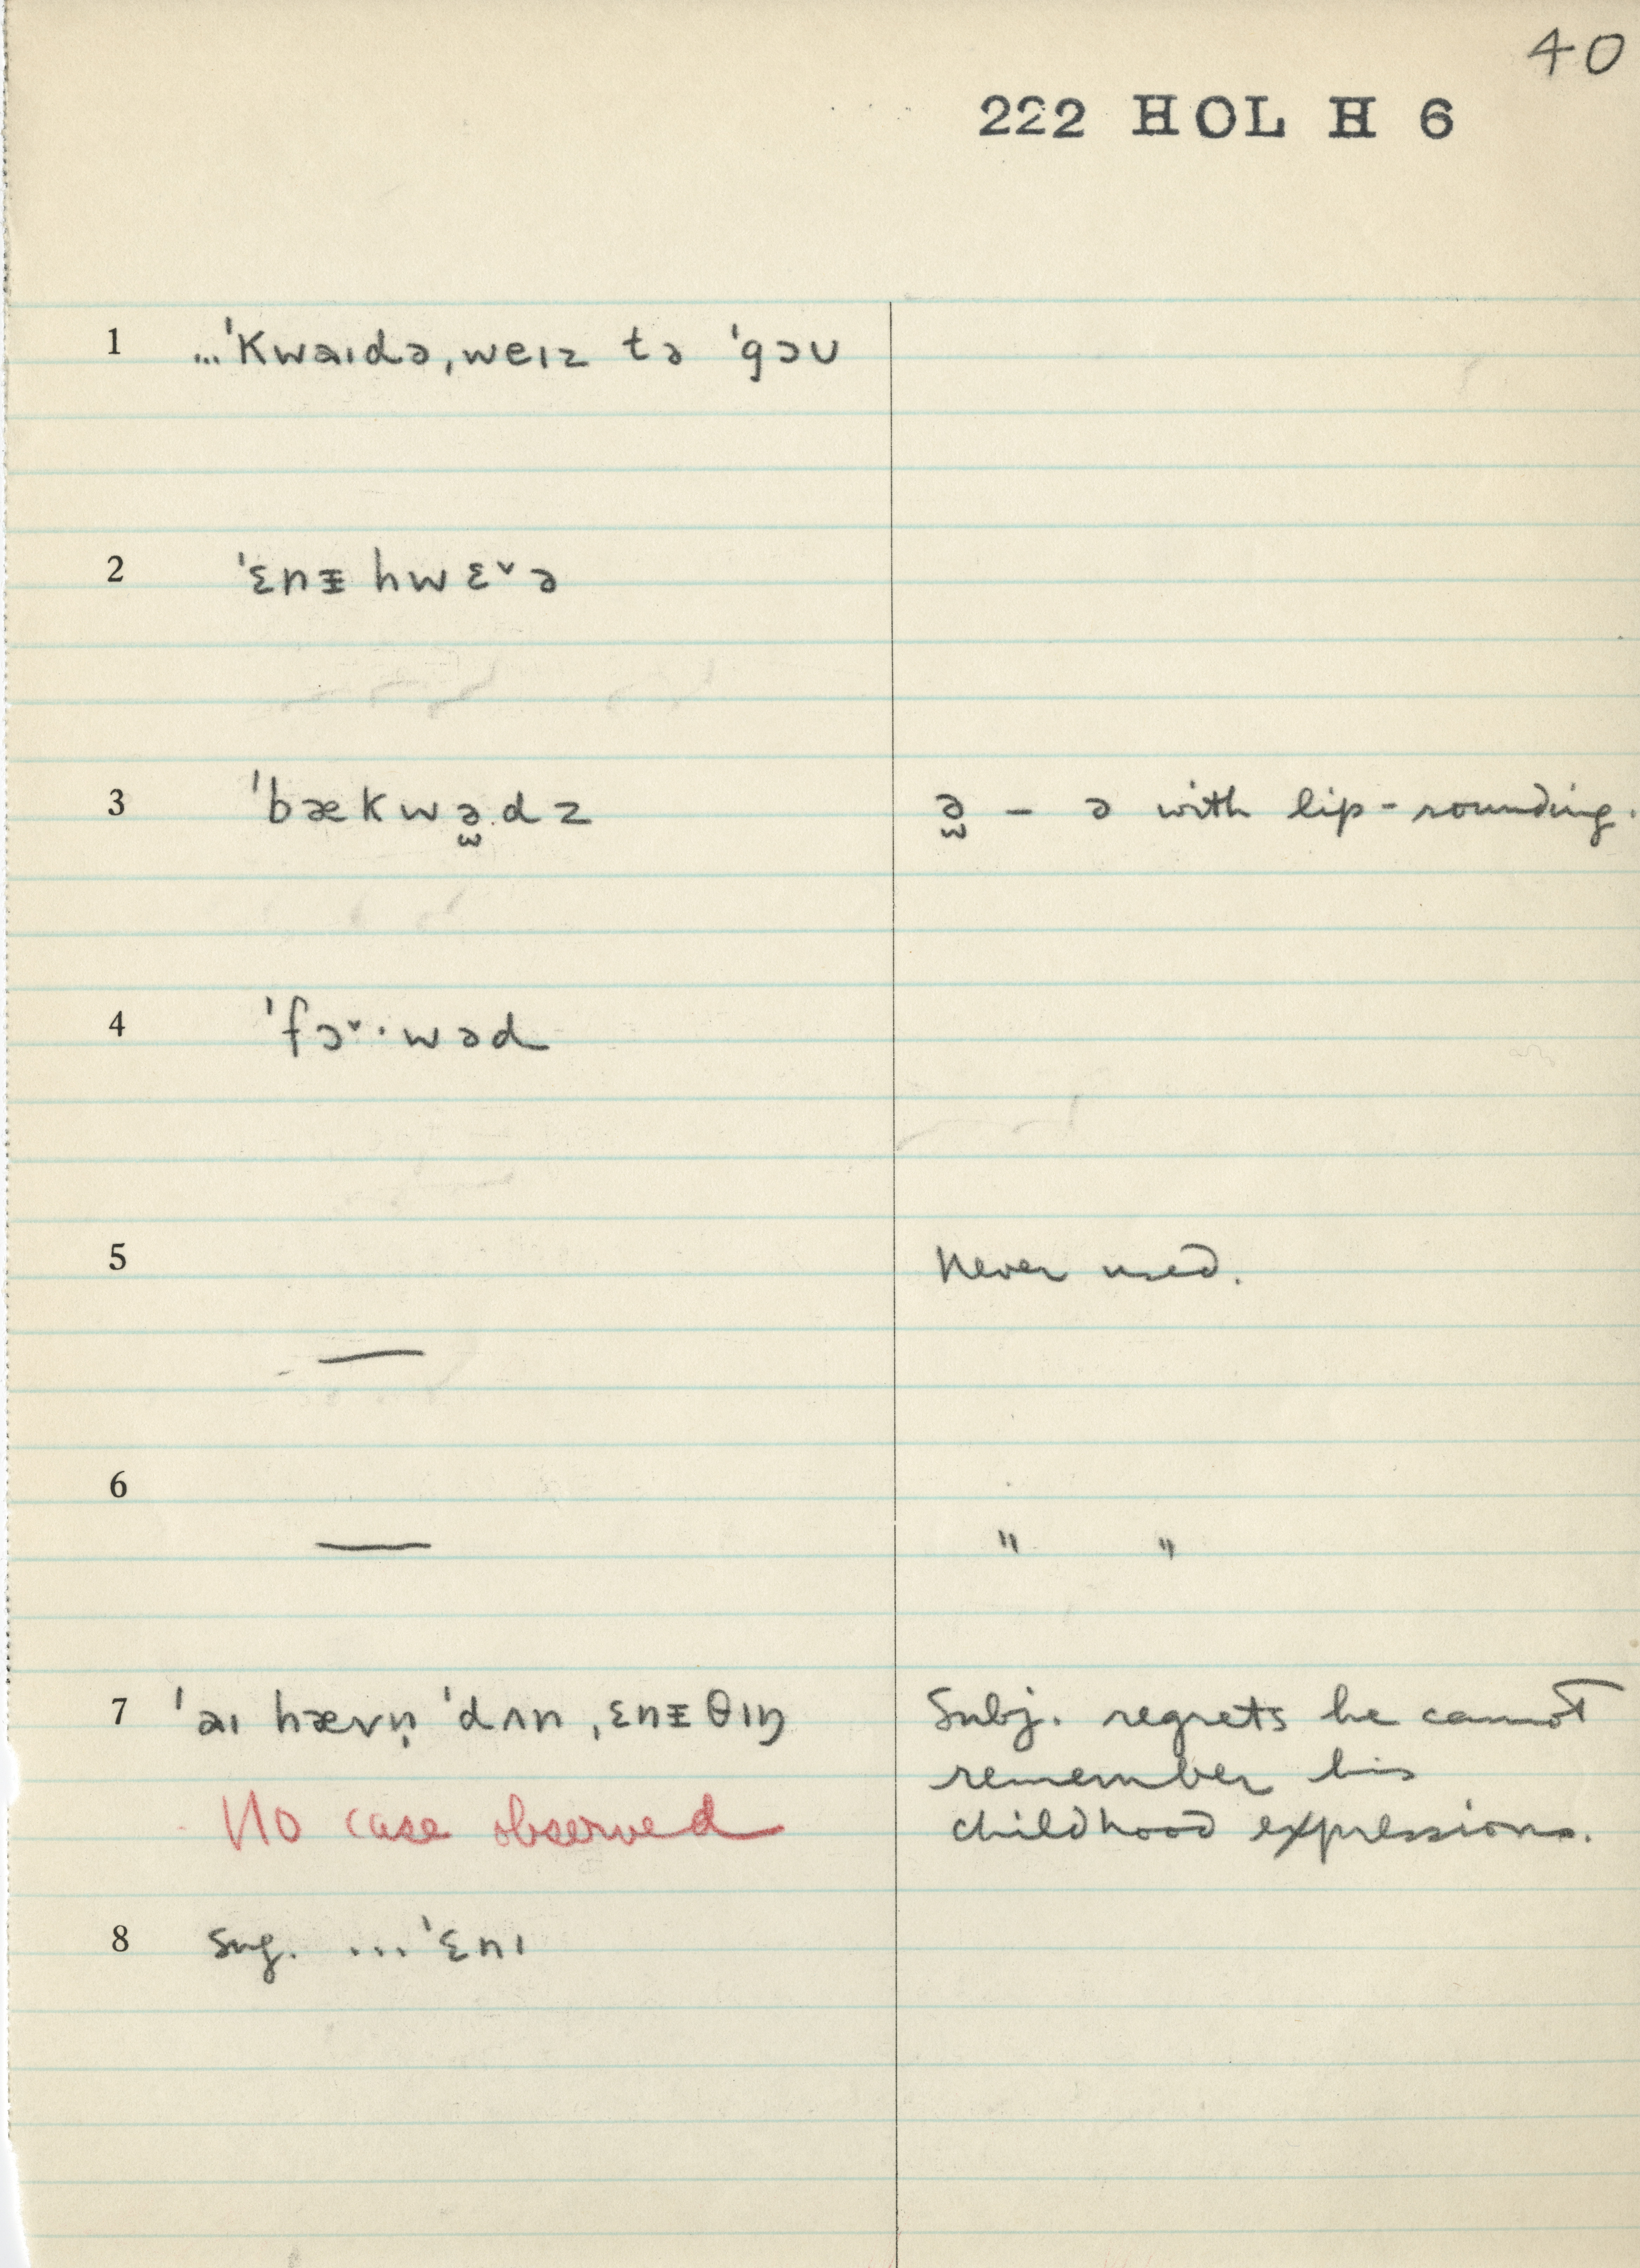 40
222 HOL H 6
1 ...ˈkwaɪdə,weɪz tə ˈgəʊ
2 ˈɛnᵻ hwɛ˅ə
3 ˈbækwə̫dz ə̫ – ə with lip-rounding.
4 ˈfɔ˅·wəd
5 Never used.
—
6
— " "
7 ˈaɪ hævn̩ ˈdʌn ,ɛnᵻθɪŋ Subj. regrets he cannot
remember his
No case observed childhood expressions.
8 sug. ...ˈɛnɪ